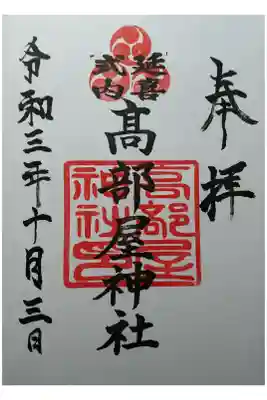 奉拝
延喜
式内
髙部屋神社
髙部屋
神社印
令和三年十月三日